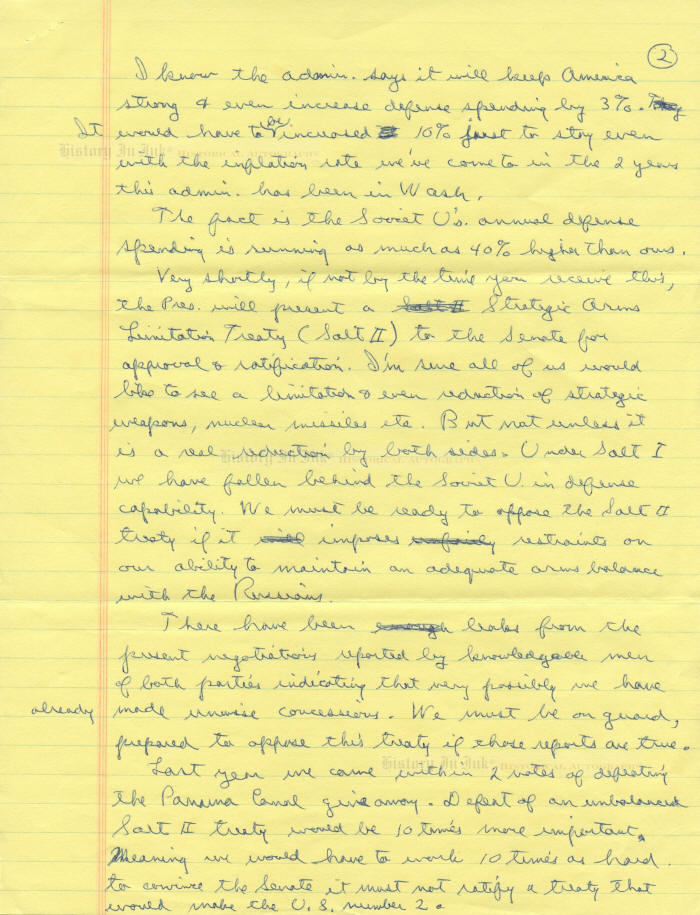 2
I know the admin. says it will keep America
strong & even increase defense spending by 3%.
It would have to be increased 10% just to stay even
with the inflation rate we've come to in the 2 years
this admin. has been in Wash.
The fact is the Soviet U's. annual defense
spending is running as much as 40% higher than ours.
Very shortly, if not by the time you receive this,
the Pres. will present a Salt II Strategic Arms
Limitation Treaty (Salt II) to the Senate for
approval & ratification. I'm sure all of us would
like to see a limitation & even reduction of strategic
weapons, nuclear missiles etc. But not unless it
is a real reduction by both sides. Under Salt I
we have fallen behind the Soviet U. in defense
capability. We must be ready to oppose the Salt II
treaty if it will imposes unfairly restraints on
our ability to maintain an adequate arms balance
with the Russians.
There have been enough leaks from the
present negotiations reported by knowledgeable men
of both parties indicating that very possibly we have
already made unwise concessions. We must be on guard,
prepared to oppose this treaty if those reports are true.
Last year we came within 2 votes of defeating
the Panama Canal give away. Defeat of an unbalanced
Salt II treaty would be 10 times more important.
Meaning we would have to work 10 times as hard
to convince the Senate it must not ratify a treaty that
would make the U.S. number 2.